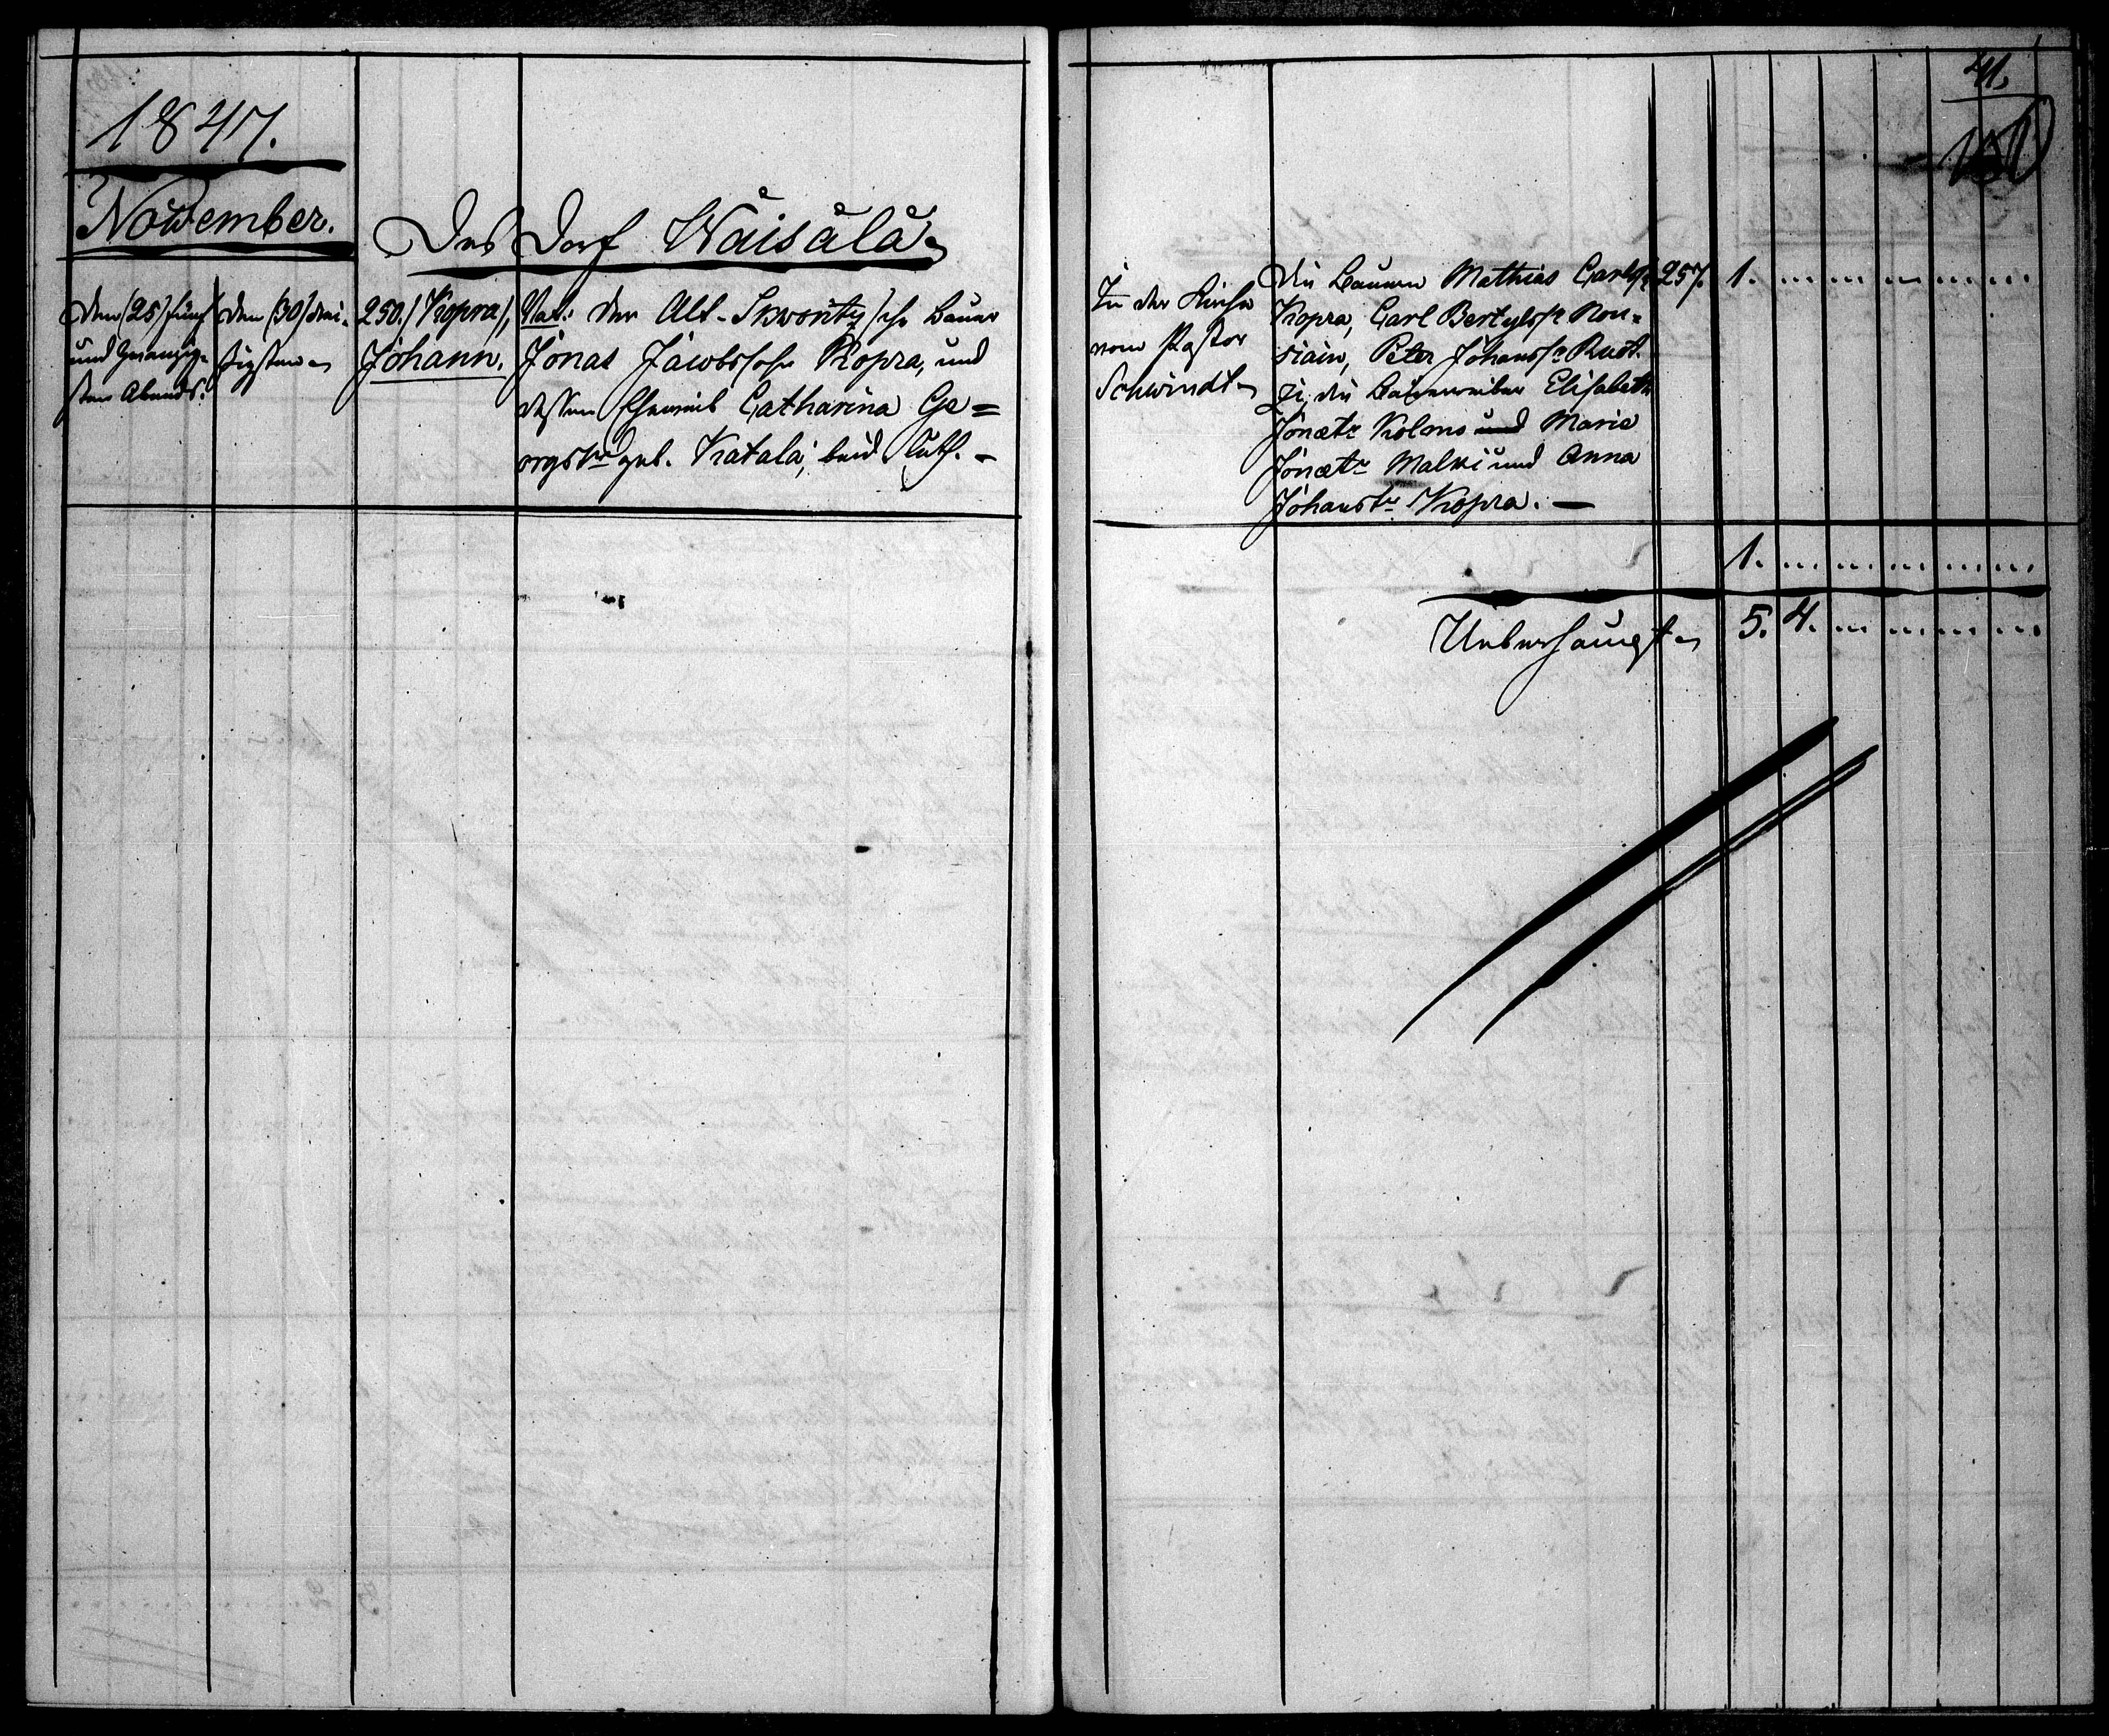 1847.
November.
Das Dorf Wäisälä
Den (25) fünf
und zwanzig-
sten Abends.
Den (30) drei-
ßigsten
250. (Kopra),
Johann.
Vat: Der Alt-Skworitz sche Bauer
Jonas Jacobssohn Kopra, und
dessen Eheweib Catharina Ge=
orgstr geb. Katala, beid. luth. –
41.
In der Kirche
vom Pastor
Schwindt
Die Bauern Mathias Carlss.
Kopra, Carl Bertylss. Non=
siain, Peter Johanss. Ruot-
zi, die Bauerweiber Elisabeth
Jonætr Kolmo und Maria
Jonætr Malki und Anna
Johanstr Kopra. —
257.
1.
1.
Ueberhaupt 5. 4.